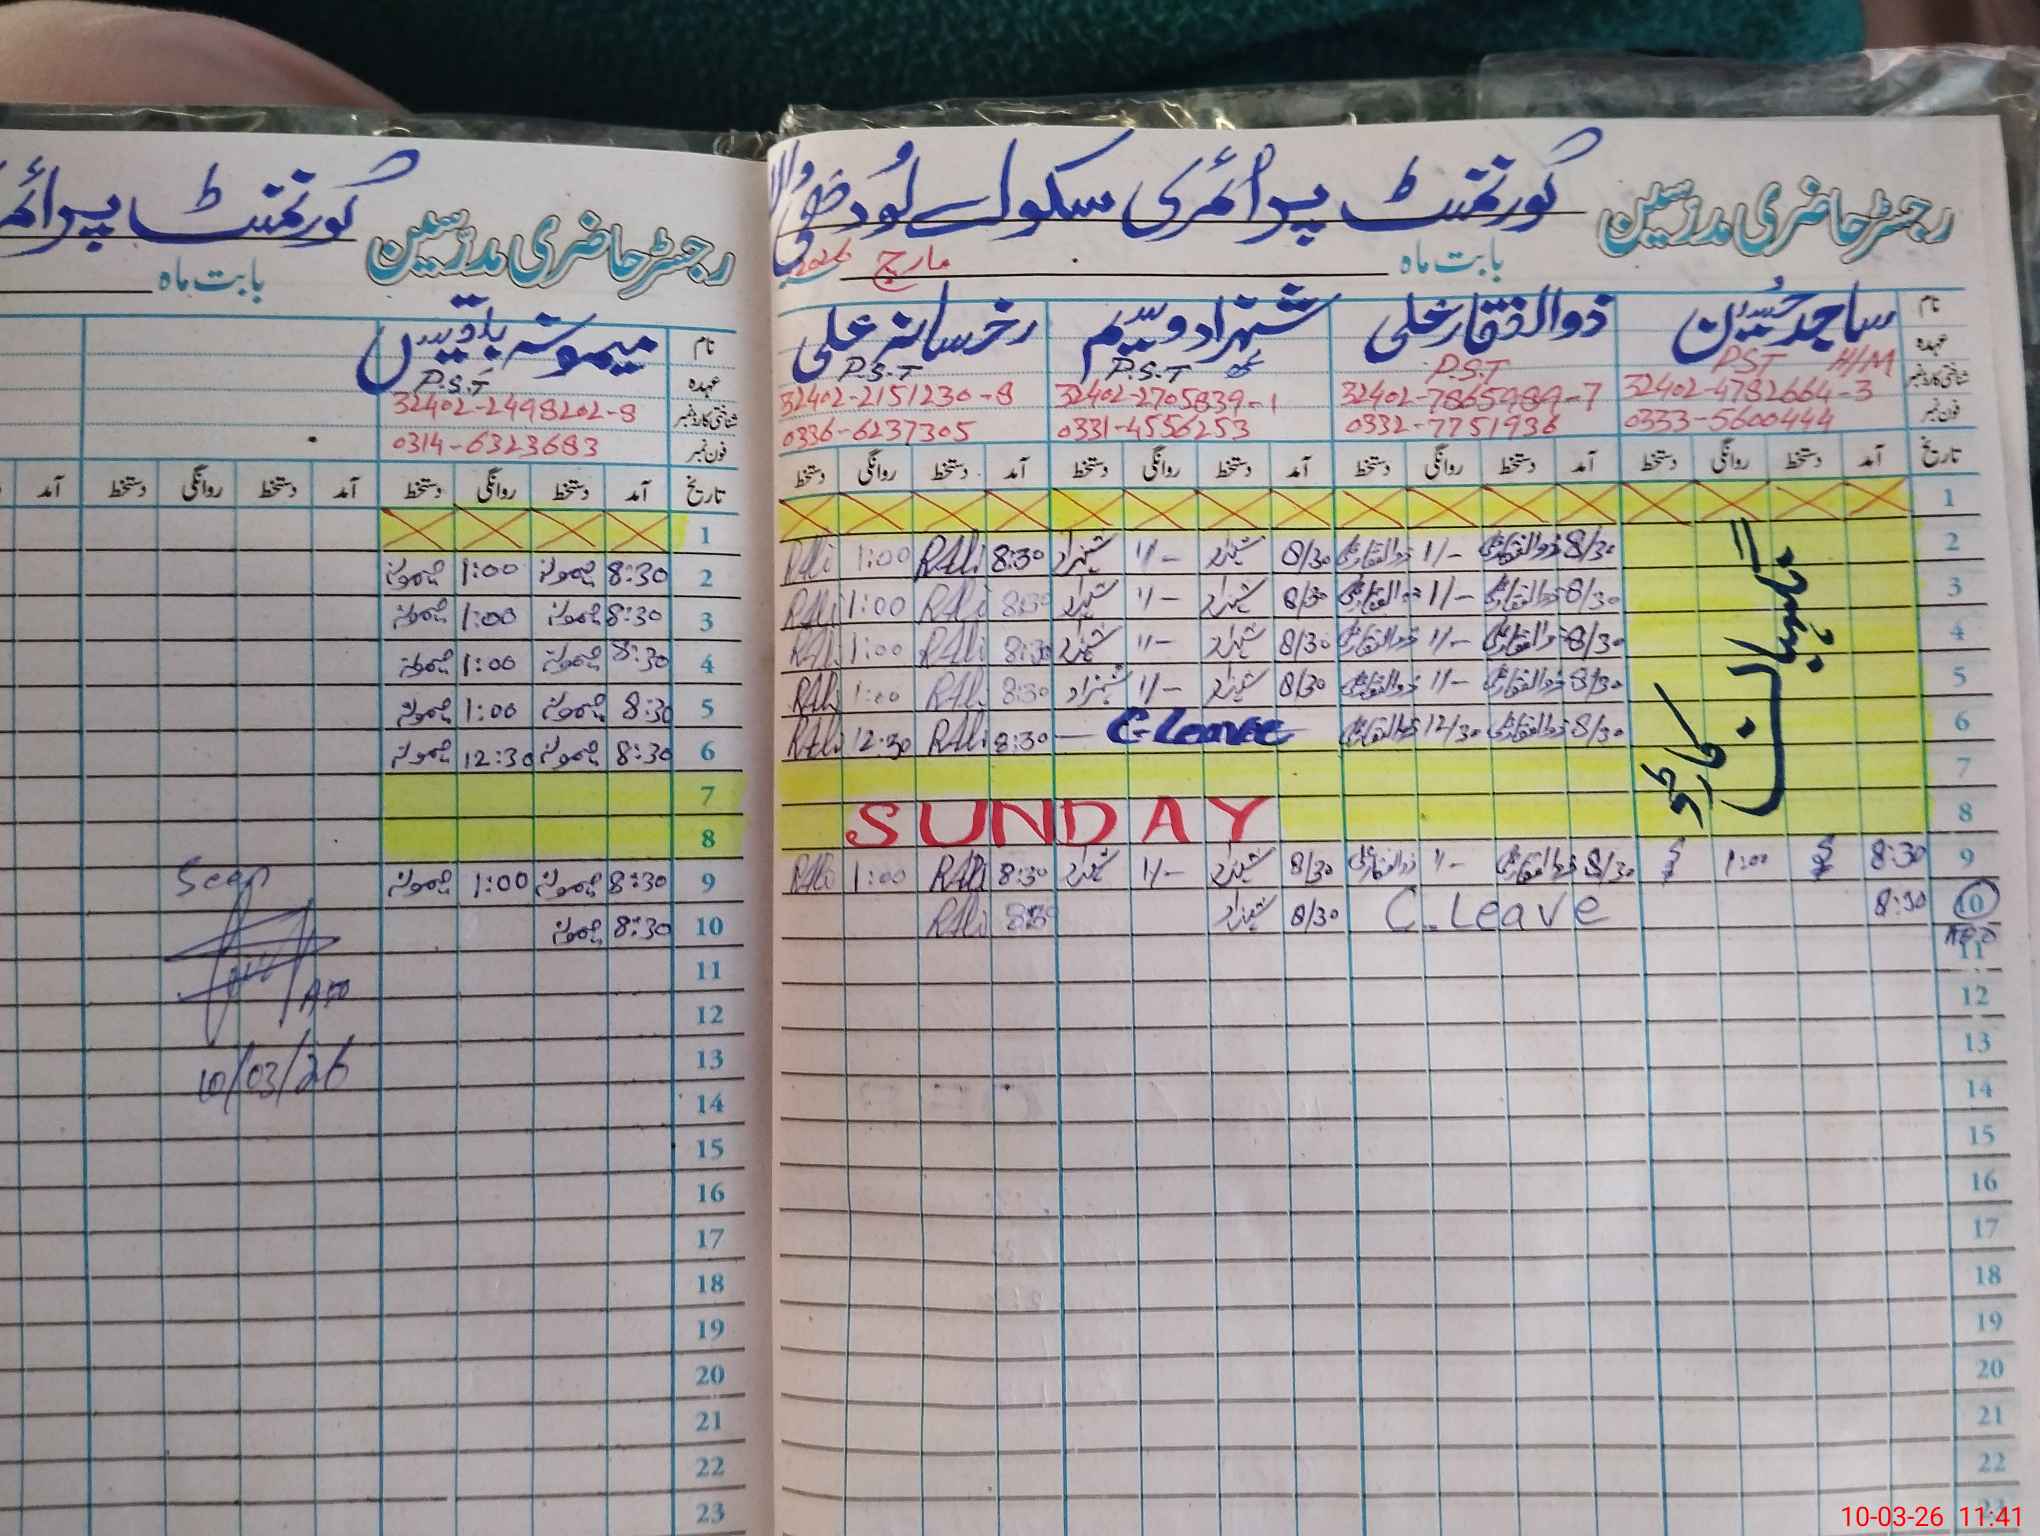 رجسٹر حاضری مدرسین گورنمنٹ پرائمری سکول لودھی والا
بابت ماہ مارچ 2026
نام ساجد حسین ذوالفقار علی شہزاد وسیم رخسانہ علی
عہدہ PST H/M P.S.T P.S.T P.S.T
شناختی کارڈ نمبر 32402-4782664-3 32402-7865989-7 32402-2705839-1 32402-2151230-8
فون نمبر 0333-5600444 0332-7751936 0331-4556253 0336-6237305
تاریخ آمد دستخط روانگی دستخط آمد دستخط روانگی دستخط آمد دستخط روانگی دستخط آمد دستخط روانگی دستخط
1
2 8/30 ذوالفقار علی 1/- ذوالفقار علی 8/30 شہزاد 1/- شہزاد 8:30 RAli 1:00 RAli
3 8/30 ذوالفقار علی 1/- ذوالفقار علی 8/30 شہزاد 1/- شہزاد 8:30 RAli 1:00 RAli
4 8/30 ذوالفقار علی 1/- ذوالفقار علی 8/30 شہزاد 1/- شہزاد 8:30 RAli 1:00 RAli
5 8/30 ذوالفقار علی 1/- ذوالفقار علی 8/30 شہزاد 1/- شہزاد 8:30 RAli 1:00 RAli
6 8/30 ذوالفقار علی 12/30 ذوالفقار علی C-Leave 8:30 RAli 12:30 RAli
7
8 SUNDAY
9 8:30 1:00 8/30 ذوالفقار علی 1/- ذوالفقار علی 8/30 شہزاد 1/- شہزاد 8:30 RAli 1:00 RAli
10 8:30 C.Leave 8/30 شہزاد 8:30 RAli
11
12
13
14
15
16
17
18
19
20
21
22
23
رجسٹر حاضری مدرسین گورنمنٹ
بابت ماہ
نام میمونہ بلقیس
عہدہ P.S.T
شناختی کارڈ نمبر 32402-2498202-8
فون نمبر 0314-6323683
تاریخ آمد دستخط روانگی دستخط آمد دستخط روانگی دستخط آمد
1
2 8:30 میمونہ 1:00 میمونہ
3 8:30 میمونہ 1:00 میمونہ
4 8:30 میمونہ 1:00 میمونہ
5 8:30 میمونہ 1:00 میمونہ
6 8:30 میمونہ 12:30 میمونہ
7
8
9 8:30 میمونہ 1:00 میمونہ
10 8:30 میمونہ
11
12
13
14
15
16
17
18
19
20
21
22
23
Seen
10/03/26
10-03-26 11:41